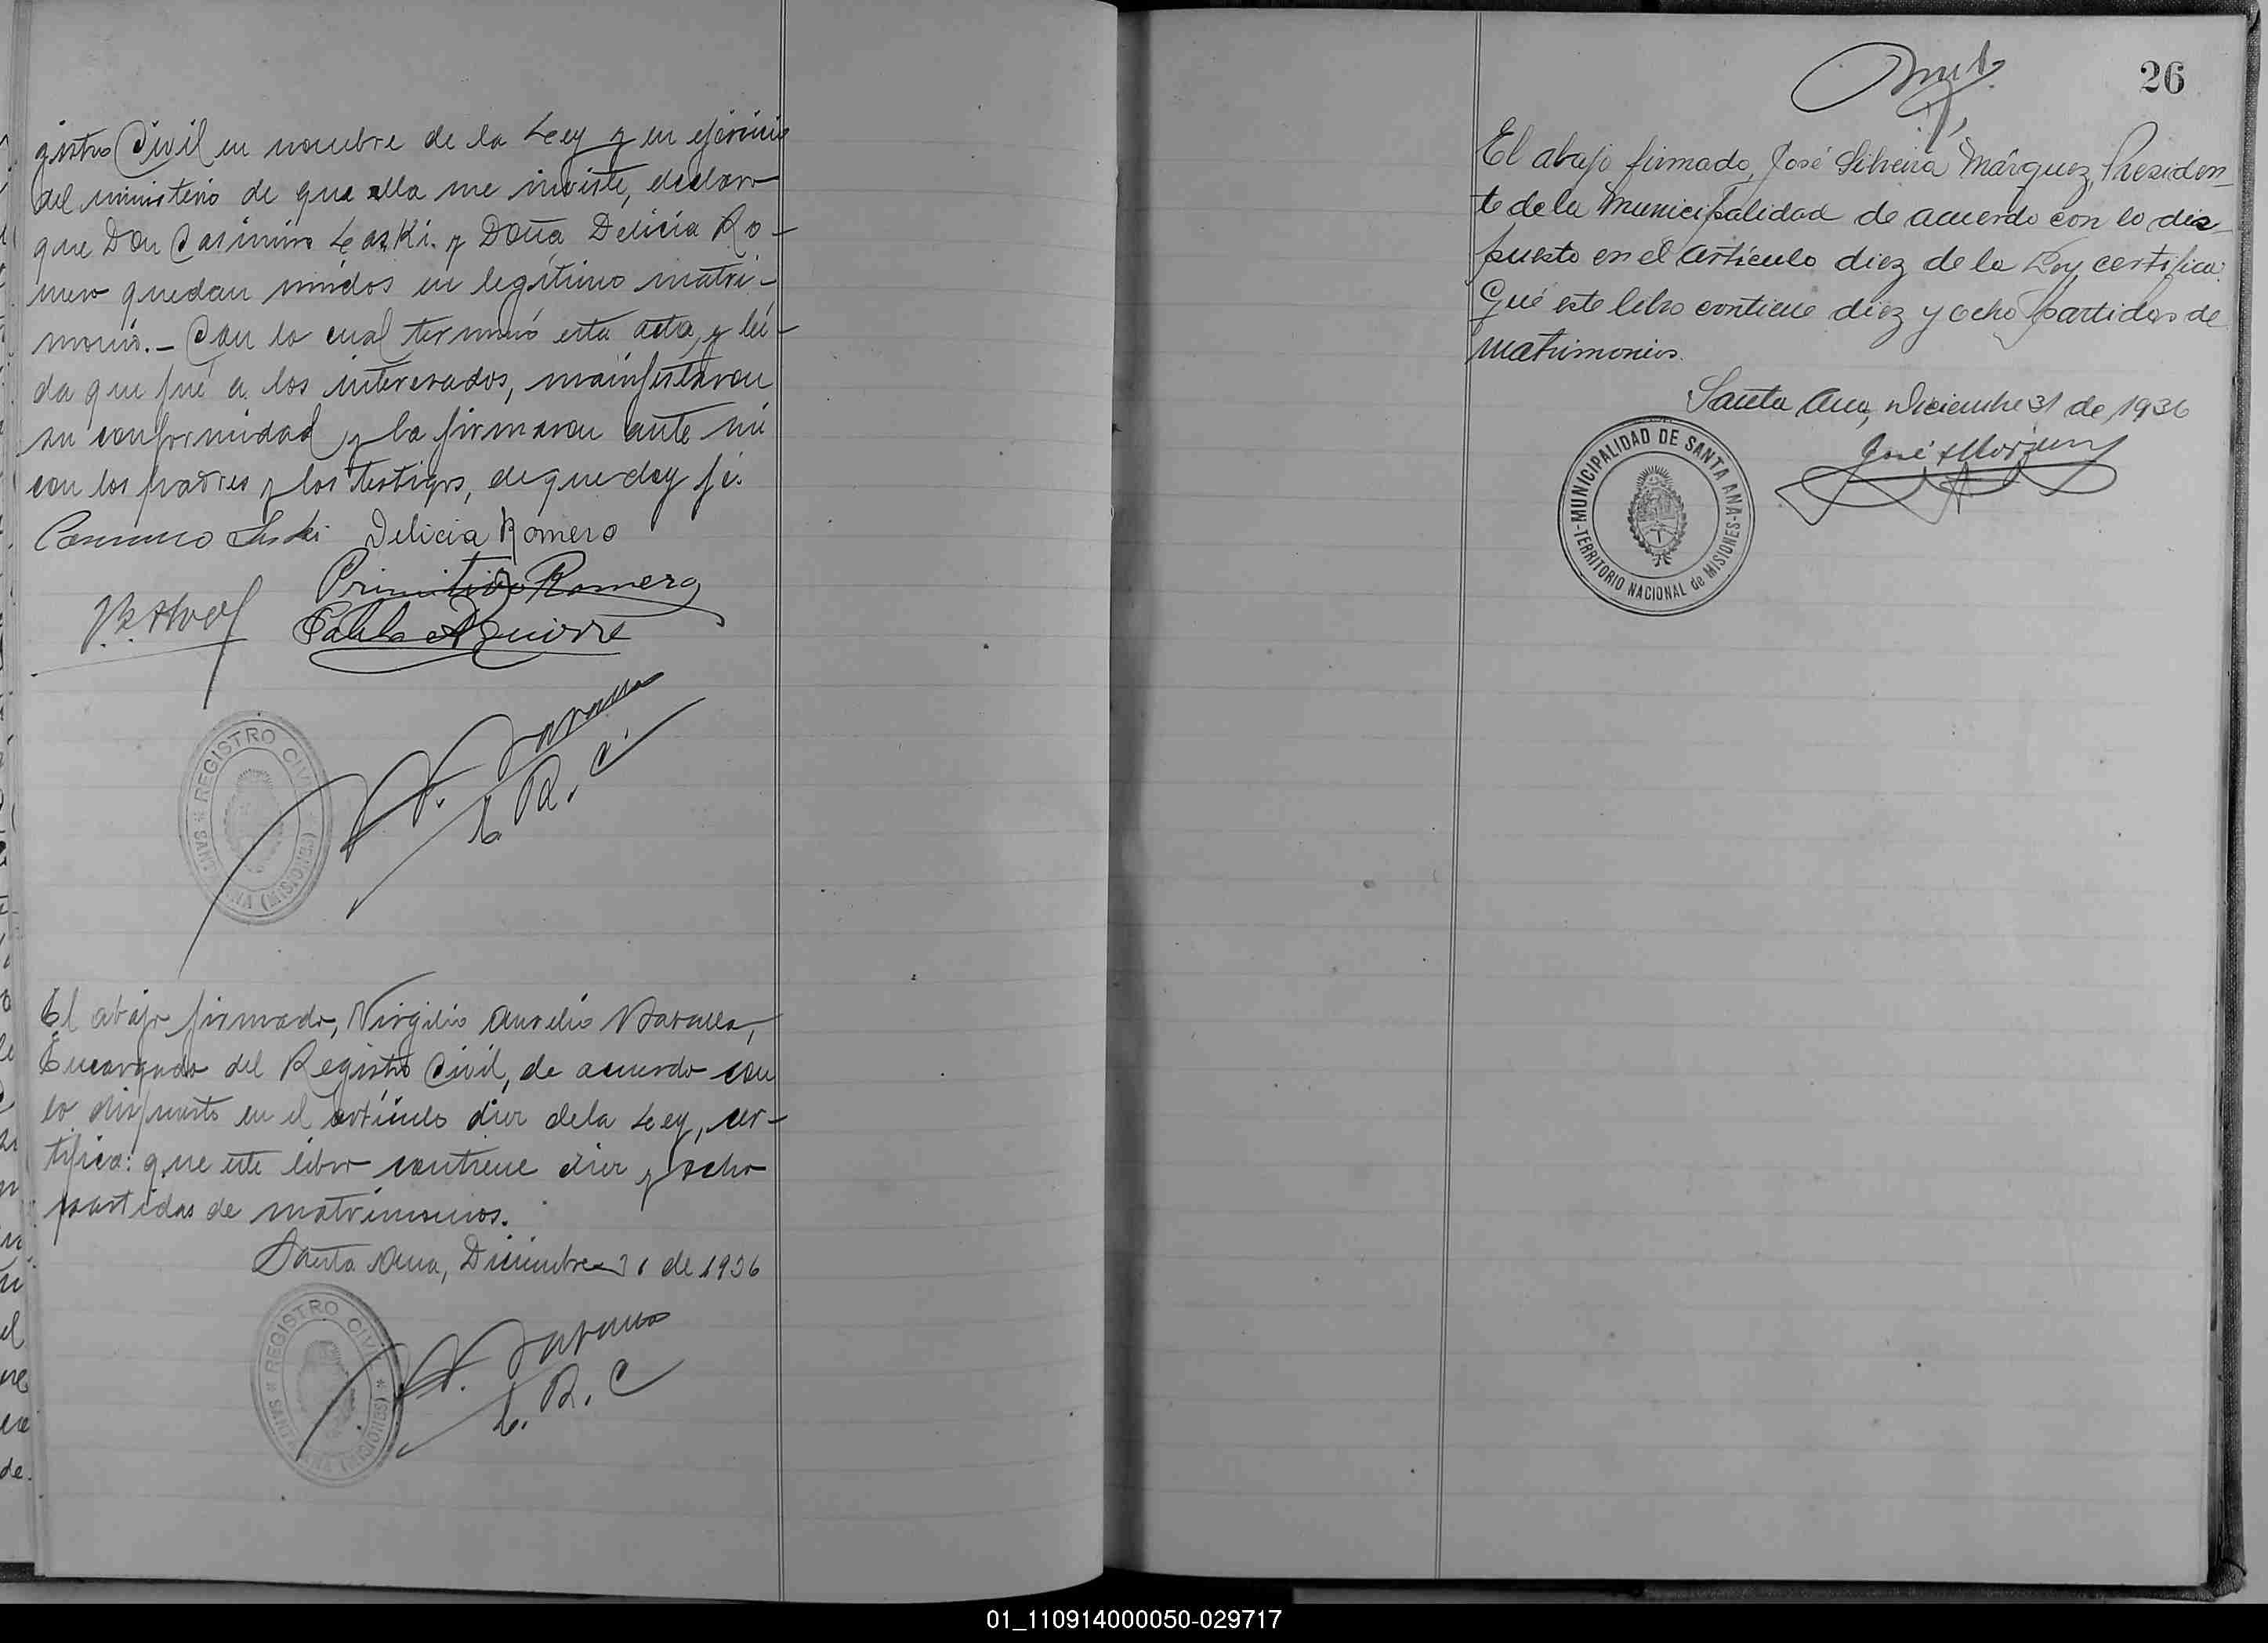 gistro Civil en nombre de la Ley y en ejercicio
del ministerio de que ella me inviste, declaro
que Don Casimiro Laski y Doña Delicia Ro-
mero quedan unidos en legítimo matri-
monio.- Con lo cual terminó esta acta, y leí-
da que fué a los interesados, manifestaron
su conformidad y la firmaron ante mi
con los padres y los testigos, de que doy fé.
Casimiro Laski Delicia Romero
Primitivo Romero
Pablo Aguirre
REGISTRO CIVIL * SANTA ANA (MISIONES) *
E. R. C.
El abajo firmado, Virgilio Aurelio
Encargado del Registro Civil, de acuerdo con
lo dispuesto en el artículo diez de la Ley, cer-
tifica: que este libro contiene diez y ocho
partidas de matrimonios.
Santa Ana, Diciembre 31 de 1936
REGISTRO CIVIL * SANTA ANA (MISIONES) *
E. R. C
26
El abajo firmado, José Silveira Márquez, Presiden-
te de la Municipalidad de acuerdo con lo dis-
puesto en el artículo diez de la Ley certifica:
Que este libro contiene diez y ocho partidas de
matrimonios.
Santa Ana, Diciembre 31 de 1936
MUNICIPALIDAD DE SANTA ANA-TERRITORIO NACIONAL de MISIONES-
01_110914000050-029717